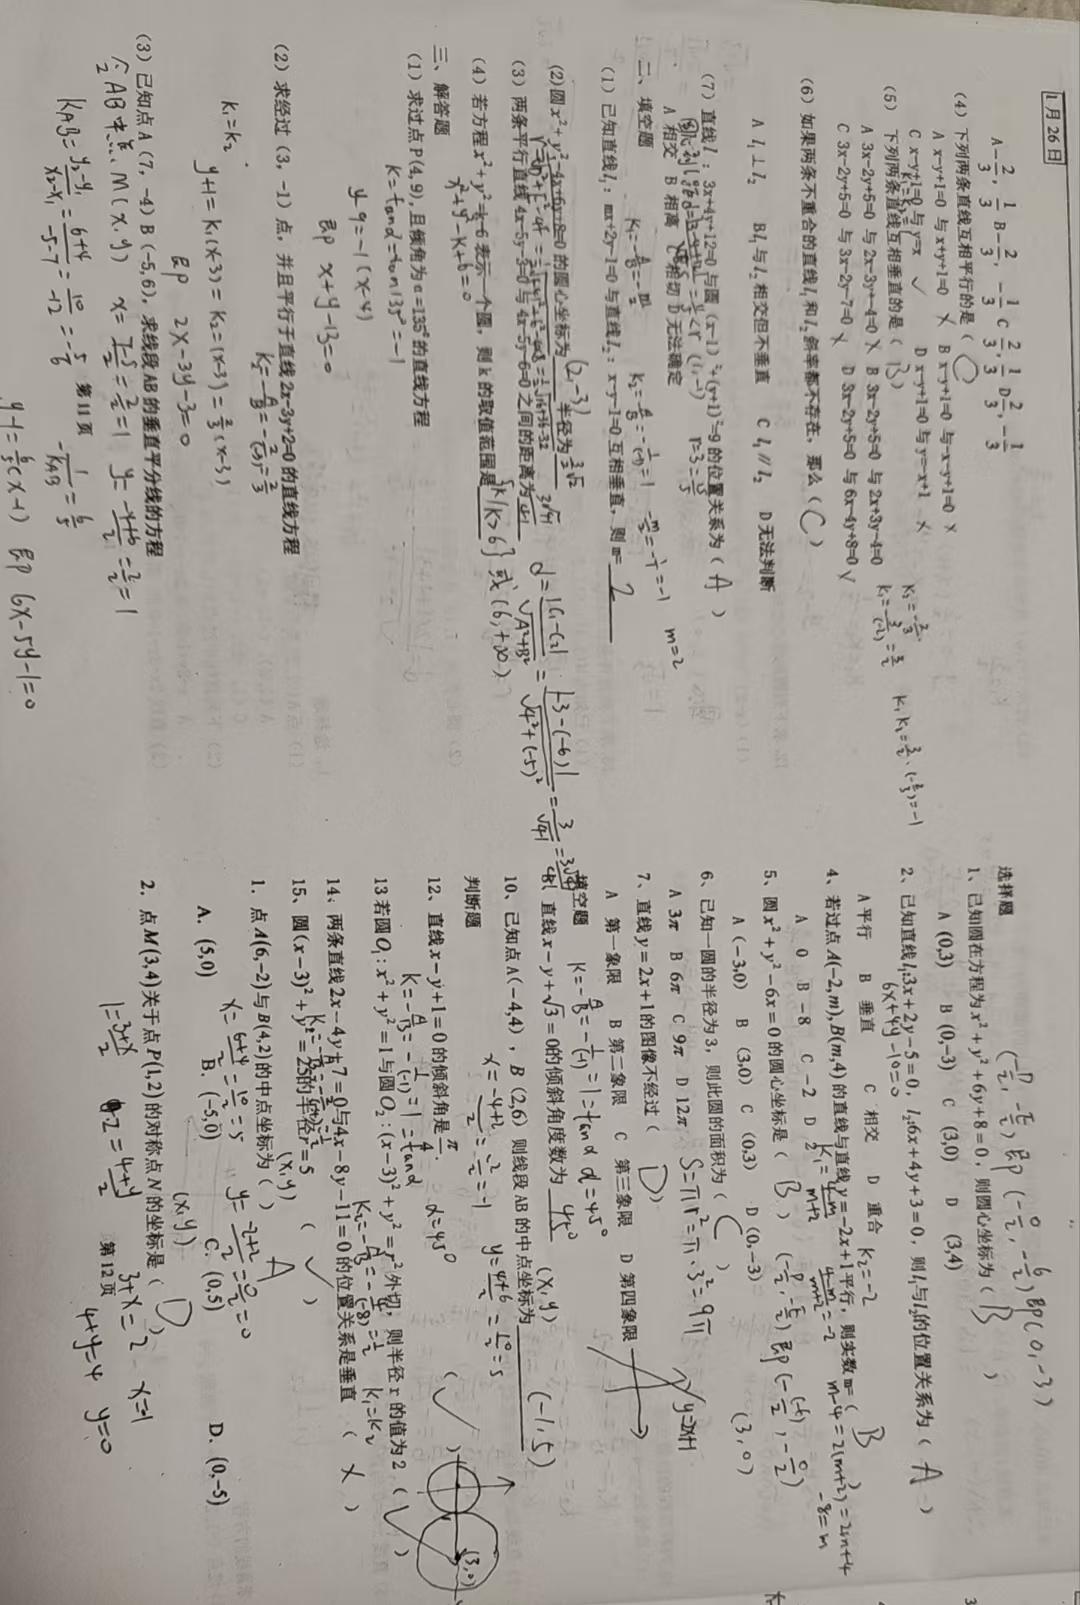 1月26日
A -2/3, 1/3 B -2/3, -1/3 C 2/3, 1/3 D 2/3, -1/3
(4) 下列两条直线互相平行的是 ( C )
A x-y+1=0 与 x+y+1=0 × B x-y+1=0 与 -x-y+1=0 ×
C x-y+1=0 与 y=x ✓ D x-y+1=0 与 y=-x+1 ×
(5) 下列两条直线互相垂直的是 ( B )
A 3x-2y+5=0 与 2x-3y-4=0 × B 3x-2y+5=0 与 2x+3y-4=0
C 3x-2y+5=0 与 3x-2y-7=0 × D 3x-2y+5=0 与 6x-4y+8=0 √
k₁=-3/(-2)=3/2 k₂=-2/3 k₁k₂=3/2·(-2/3)=-1
(6) 如果两条不重合的直线l₁和l₂斜率都不存在,那么 ( C )
A l₁⊥l₂ B l₁与l₂相交但不垂直 C l₁∥l₂ D 无法判断
(7) 直线l:3x+4y+12=0 与圆 (x-1)²+(y+1)²=9 的位置关系为 ( A )
A 相交 B 相离 C 相切 D 无法确定
(1,-1)
二、填空题
k₁=-A/B=-m/2 k₂=-A/B=-1/(-1)=1 -m/2=-1/1=-1 m=2
(1) 已知直线l₁:mx+2y-1=0 与直线l₂:x-y-1=0 互相垂直,则 m= 2
(2) 圆 x²+y²-4x+6y+8=0 的圆心坐标为 (2,-3) 半径为
(3) 两条平行直线 4x-5y-3=0 与 4x-5y-6=0 之间的距离为 3√41/41
d=|C₁-C₂|/√A²+B²=|-3-(-6)|/√4²+(-5)²=3/√41=
(4) 若方程 x²+y²=k-6 表示一个圆,则 k 的取值范围是 {k|k>6} 或 (6,+∞)
x²+y²-k+6=0
三、解答题
(1) 求过点 P(4,9),且倾角为 α=135°的直线方程
k=tanα=tan135°=-1
y-9=-1(x-4)
即 x+y-13=0
(2) 求经过 (3,-1) 点,并且平行于直线 2x-3y+2=0 的直线方程
k₂=-A/B=-2/(-3)=2/3
k₁=k₂.
y+1=k₁(x-3)=k₂=(x-3)=2/3(x-3)
即 2x-3y-3=0
(3) 已知点 A (7,-4) B (-5,6),求线段 AB 的垂直平分线的方程
令AB中点、M(x,y) x=7-5/2=2/2=1 y=-4+6/2=2/2=1
kAB=y₂-y₁/x₂-x₁=6+4/-5-7=10/-12=-5/6 -1/kAB=6/5
第11页
y-1=6/5(x-1) 即 6x-5y-1=0
选择题
(-D/2,-E/2) 即 (-0/2,-6/2) 即(0,-3)
1、已知圆在方程为 x²+y²+6y+8=0,则圆心坐标为 ( B )
A (0,3) B (0,-3) C (3,0) D (3,4)
2、已知直线l₁:3x+2y-5=0,l₂:6x+4y+3=0,则l₁与l₂的位置关系为 ( A )
6x+4y-10=0
A 平行 B 垂直 C 相交 D 重合
4、若过点A(-2,m),B(m,4)的直线与直线y=-2x+1平行,则实数m=( B )
k₂=-2 4-m/m+2=-2 m-4=2(m+2)=2m+4
A 0 B -8 C -2 D 2
-8=m
5、圆x²+y²-6x=0的圆心坐标是 ( B )
(-D/2,-E/2) 即 (-(-6)/2,-0/2)
A (-3,0) B (3,0) C (0,3) D (0,-3)
(3,0)
6、已知一圆的半径为3,则此圆的面积为 ( C )
A 3π B 6π C 9π D 12π
S=πr²=π·3²=9π
7、直线y=2x+1的图像不经过 ( D )
A 第一象限 B 第二象限 C 第三象限 D 第四象限
y=2x+1
填空题
k=-A/B=-1/(-1)=1=tanα α=45°
直线x-y+√3=0的倾斜角度数为 45°
10、已知点A(-4,4),B(2,6)则线段AB的中点坐标为 (-1,5)
(x,y)
x=-4+2/2=-2/2=-1 y=4+6/2=10/2=5
判断题
12、直线x-y+1=0的倾斜角是π/4. ( ✓ )
k=-A/B=-1/(-1)=1=tanα α=45°
13 若圆O₁:x²+y²=1与圆O₂:(x-3)²+y²=r²外切,则半径r的值为2 ( ✓ )
(3,0)
14、两条直线2x-4y+7=0与4x-8y-11=0的位置关系是垂直 ( × )
k₂=-A/B=-4/(-8)=1/2 k₁=k₂
15、圆(x-3)²+y²=25的半径r=5 ( ✓ )
1. 点A(6,-2)与B(4,2)的中点坐标为 ( A )
(x,y)
x=6+4/2=10/2=5 y=-2+2/2=0/2=0
A. (5,0) B. (-5,0) C. (0,5) D. (0,-5)
2. 点M(3,4)关于点P(1,2)的对称点N的坐标是 ( D )
(x,y)
1=3+x/2 2=4+y/2 3+x=2 x=-1
4+y=4 y=0
第12页